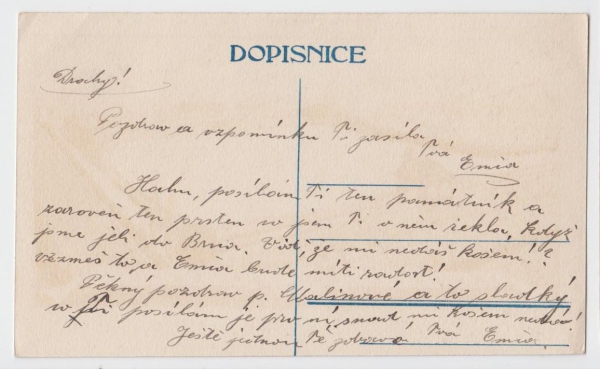 DOPISNICE
Drahý!
Pozdrav a vzpomínku Ti zasílá
Tvá
Emča
Hahu, posílám Ti ten památník a
zároveň ten prsten co jsem Ti o něm řekla, když
jsme jeli do Brna. Viď, že mi nedáš košem!?
vezmeš to a Emča bude míti radost!
Pěkný pozdrav p. a to sladký
co Ti posílám je pro ní snad mi košem nedá!
Ještě jednou Tě zdraví Tvá Emča